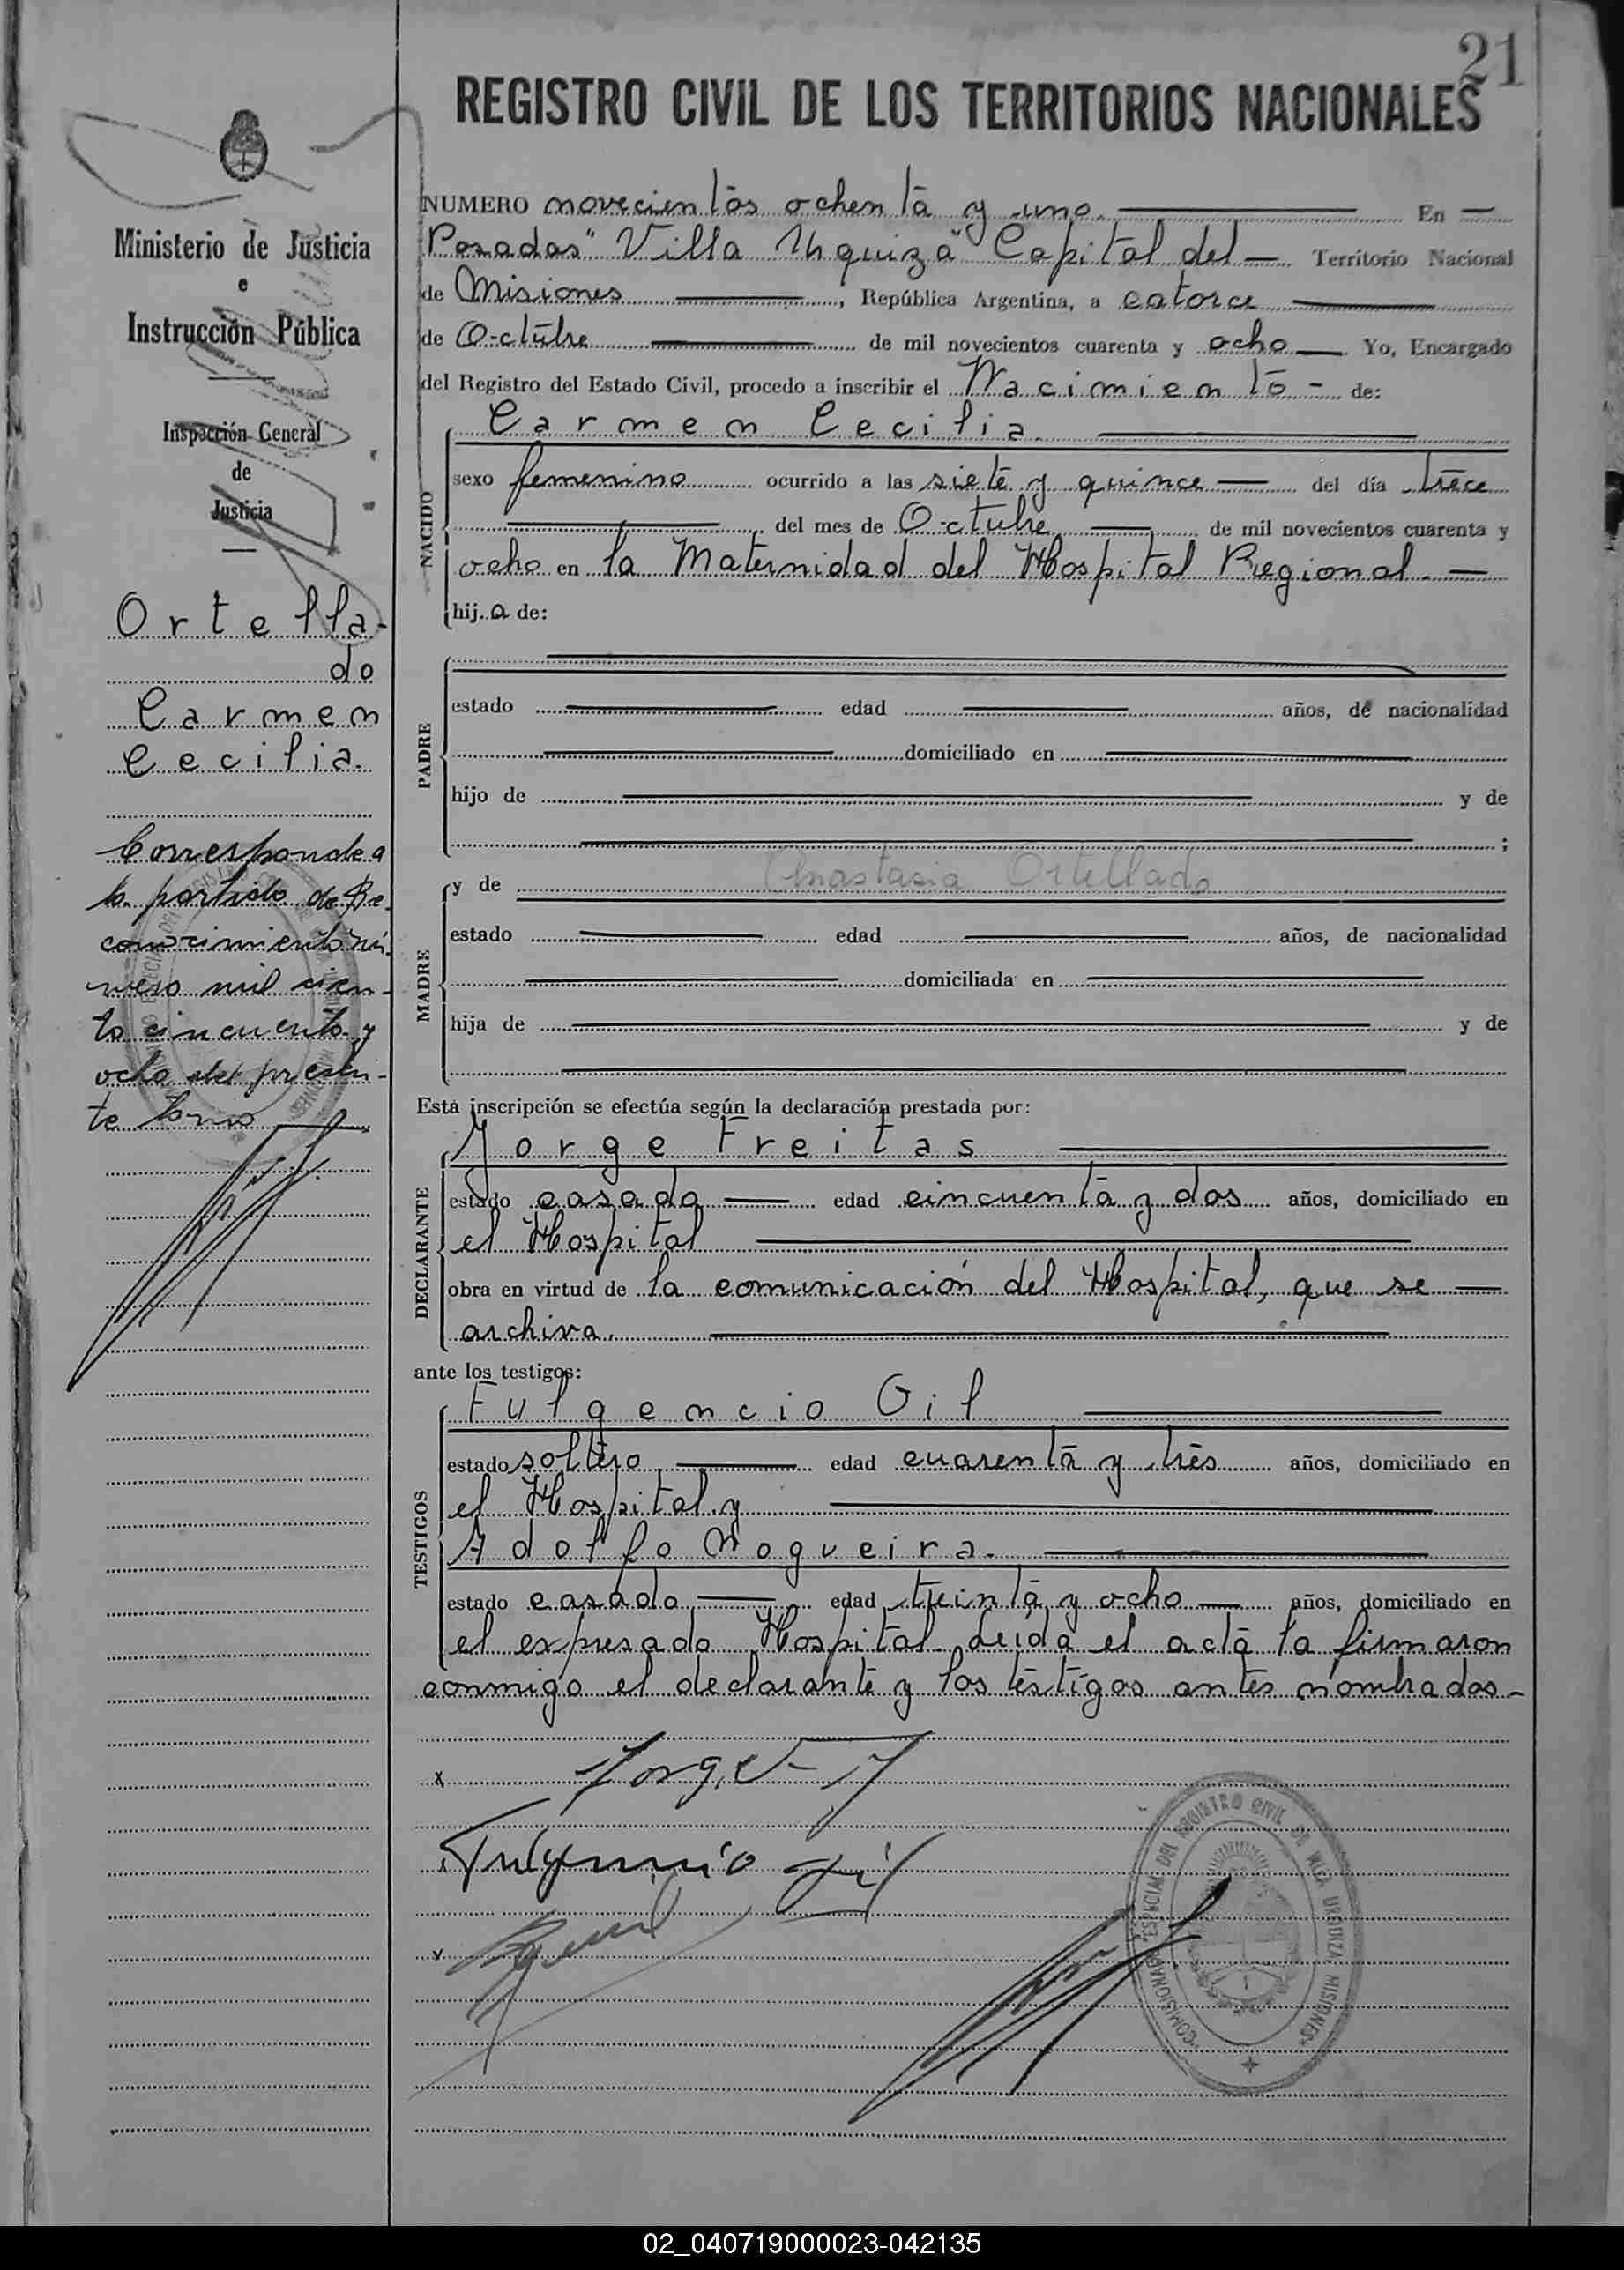 21
REGISTRO CIVIL DE LOS TERRITORIOS NACIONALES
Ministerio de Justicia
e
Instrucción Pública
Inspección General
de
Justicia
Ortella-
do
Carmen
Cecilia.
Corresponde a
la partida de Re-
conocimiento nú-
mero mil cien-
to cincuenta y
ocho del presen-
te tomo
NUMERO novecientos ochenta y uno. En
Posadas "Villa Urquiza" Capital del Territorio Nacional
de Misiones, República Argentina, a catorce
de Octubre de mil novecientos cuarenta y ocho Yo, Encargado
del Registro del Estado Civil, procedo a inscribir el Nacimiento - de:
NACIDO
Carmen Cecilia.
sexo femenino ocurrido a las siete y quince del día trece
del mes de Octubre de mil novecientos cuarenta y
ocho en la Maternidad del Hospital Regional.
hij.a de:
PADRE
estado edad años, de nacionalidad
domiciliado en
hijo de y de
;
MADRE
y de Anastasia Ortellado
estado edad años, de nacionalidad
domiciliada en
hija de y de
Esta inscripción se efectúa según la declaración prestada por:
DECLARANTE
Jorge Freitas
estado casado edad cincuenta y dos años, domiciliado en
el Hospital
obra en virtud de la comunicación del Hospital, que se
archiva.
ante los testigos:
TESTIGOS
Fulgencio Gil
estado soltero edad cuarenta y tres años, domiciliado en
el Hospital y
Adolfo Nogueira.
estado casado edad treinta y ocho años, domiciliado en
el expresado Hospital. Leída el acta la firmaron
conmigo el declarante y los testigos antes nombrados-
x Jorge
Fulgencio Gil
COMISIONADO ESPECIAL DEL REGISTRO CIVIL DE VILLA URQUIZA MISIONES
02_040719000023-042135